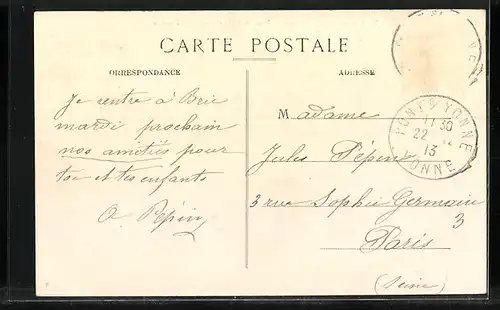 CARTE POSTALE
ORRESPONDANCE
ADRESSE
Je rentre à Brie
mardi prochain
nos amitiés pour
toi et tes enfants
O. Pépin
Madame
Jules Pépin
3 rue Sophie Germain
3
Paris
(Seine)
PONT S YONNE
11 30
22
13
YONNE